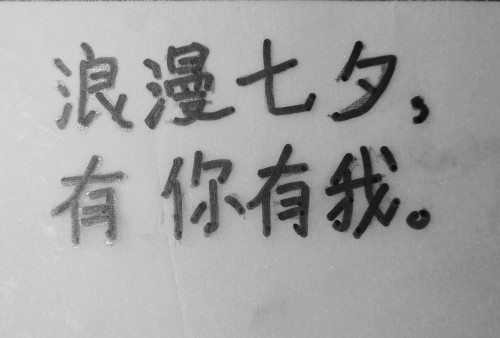 浪漫七夕,
有你有我。